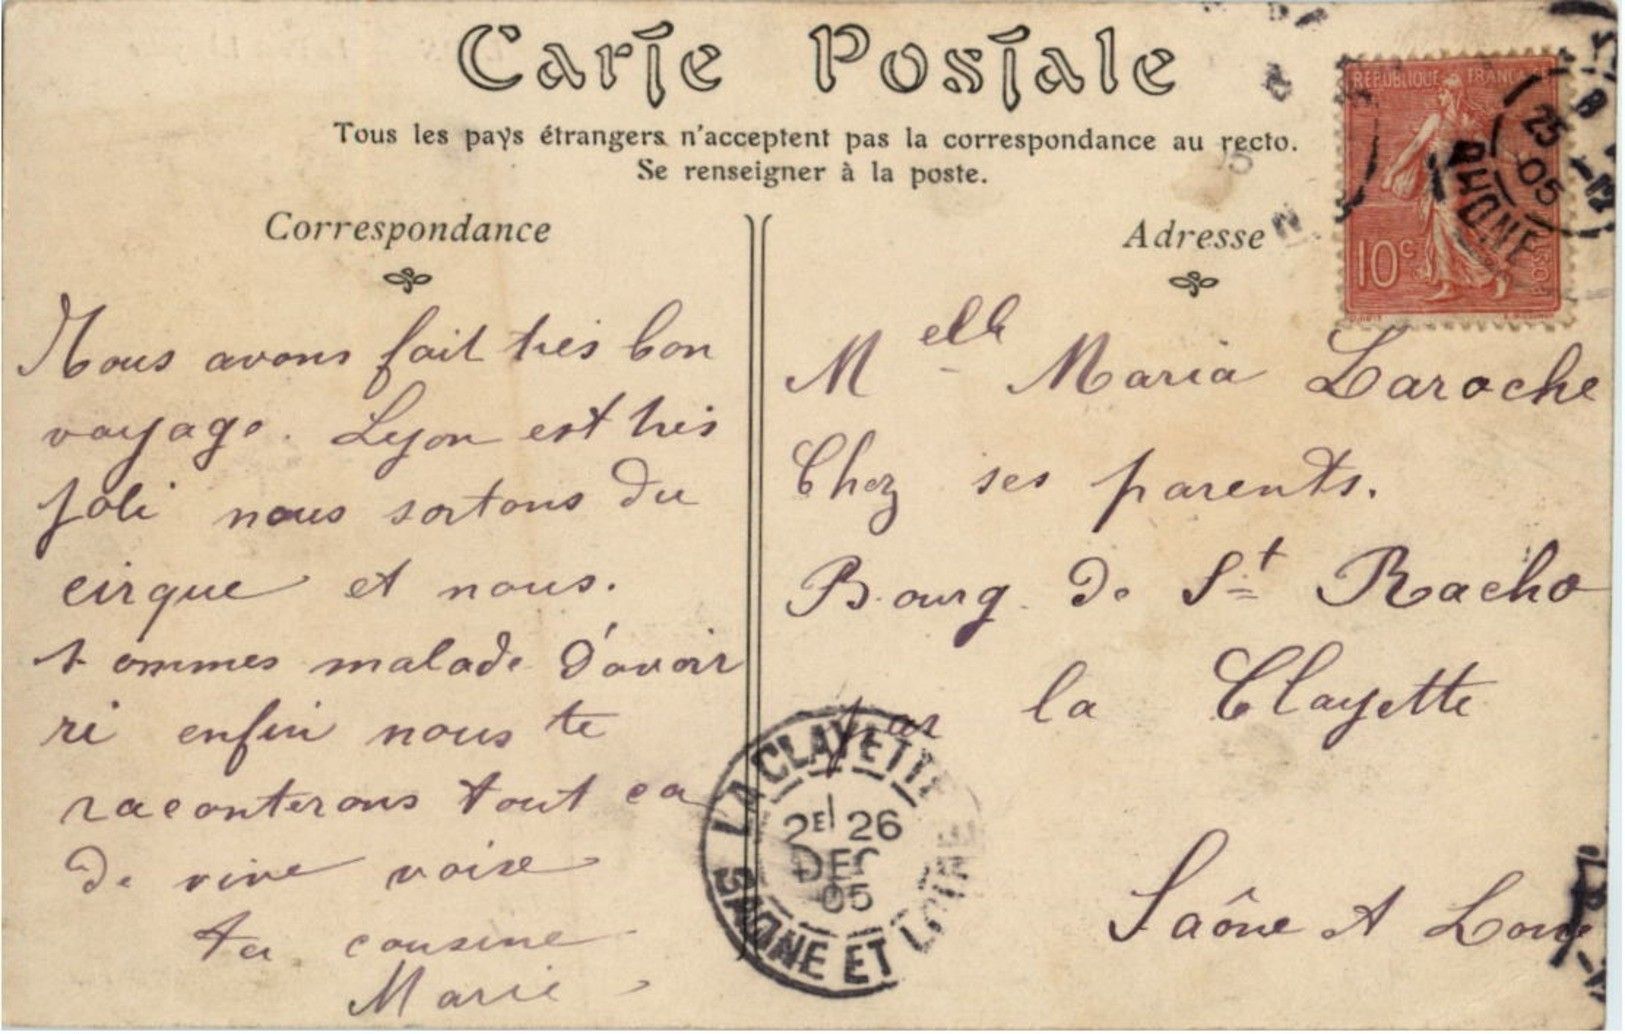 Carte Postale
Tous les pays étrangers n'acceptent pas la correspondance au recto.
Se renseigner à la poste.
Correspondance
Nous avons fait très bon
voyage. Lyon est très
joli nous sortons du
cirque et nous.
sommes malade d'avoir
ri enfin nous te
raconterons tout ca
de vive voixe
ta cousine
Marie
Adresse
Melle Maria Laroche
Chez ses parents.
Bourg de St Racho
par la Clayette
Saône et Loire
REPUBLIQUE FRANÇAISE
10c
25
05
RHONE
LA CLAYETTE
2E 26
DEC
05
SAONE ET LOIRE